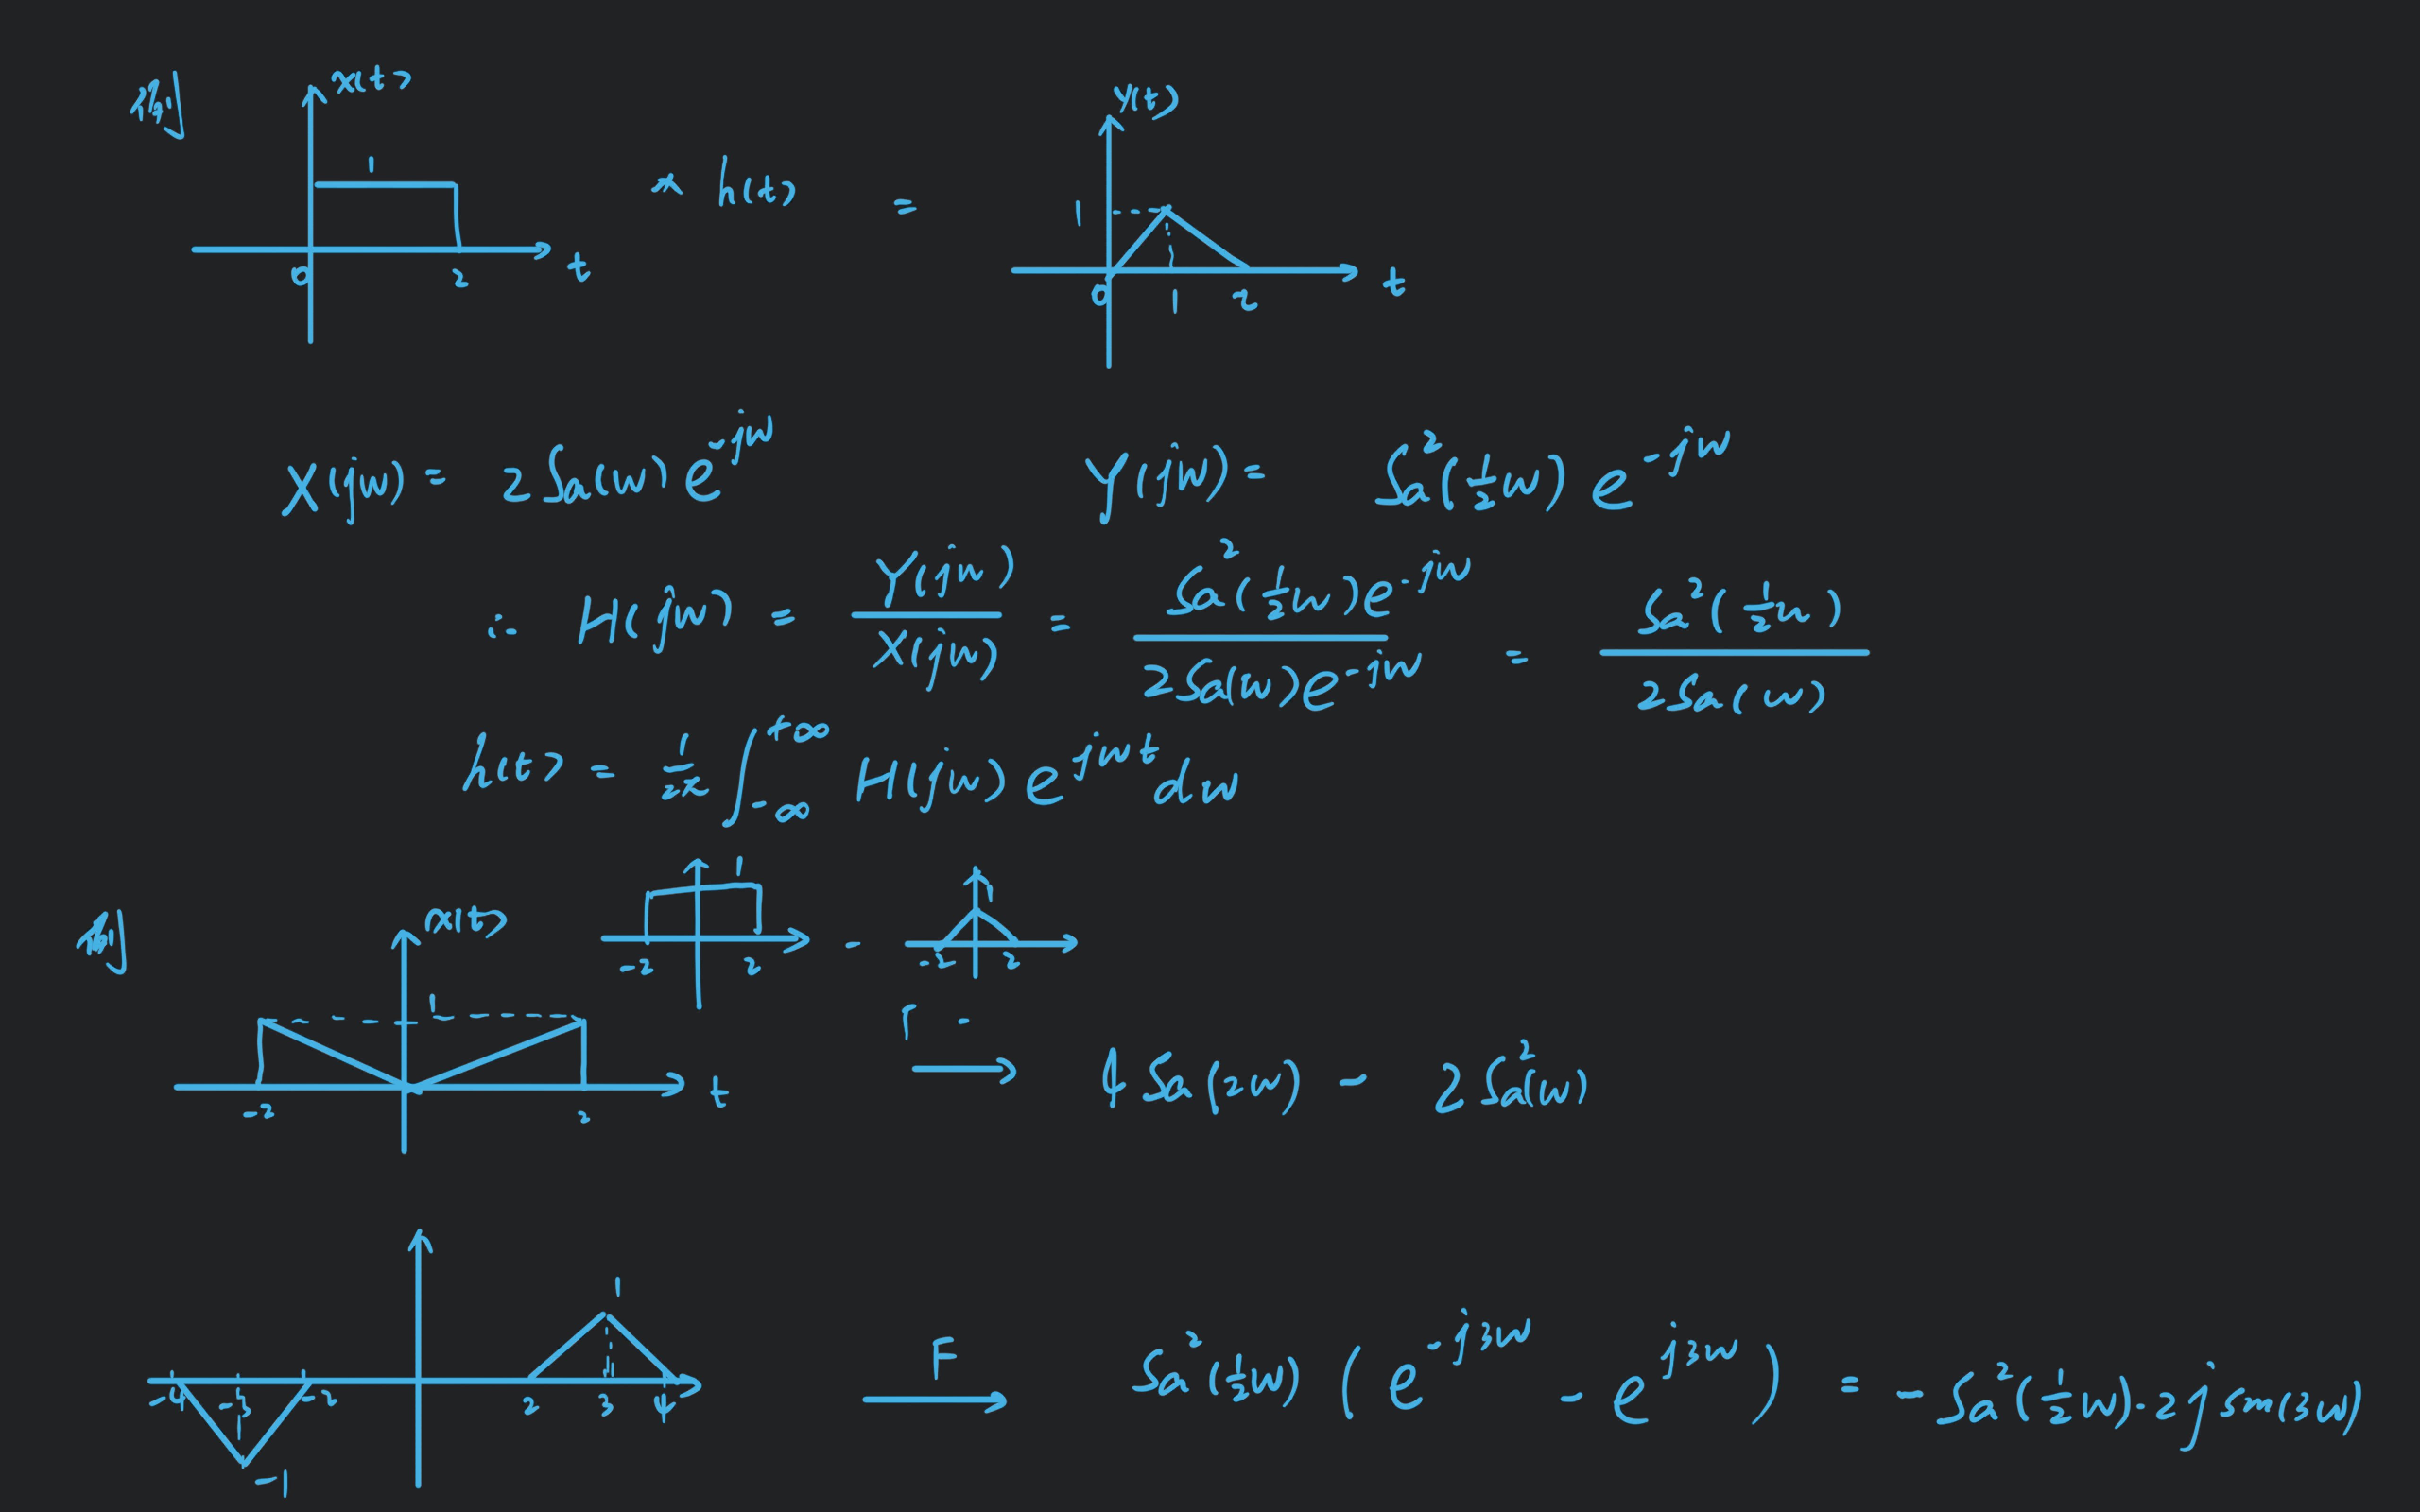 例 x(t) y(t)
1 * h(t) = 1
0 2 t 0 1 2 t
X(jw) = 2Sa(w) e^{-jw} Y(jw) = Sa²(½w) e^{-jw}
∴ H(jw) = Y(jw) / X(jw) = Sa²(½w)e^{-jw} / 2Sa(w)e^{-jw} = Sa²(½w) / 2Sa(w)
h(t) = 1/2π ∫_{-∞}^{+∞} H(jw) e^{jwt} dw
例 x(t) 1 1
-2 2 - -2 2
1
-2 2 t → 4Sa(2w) - 2Sa²(w)
1
F → Sa²(½w) (e^{-j3w} - e^{j3w}) = -Sa²(½w)·2j sin(3w)
-4 -3 -2 2 3 4
-1